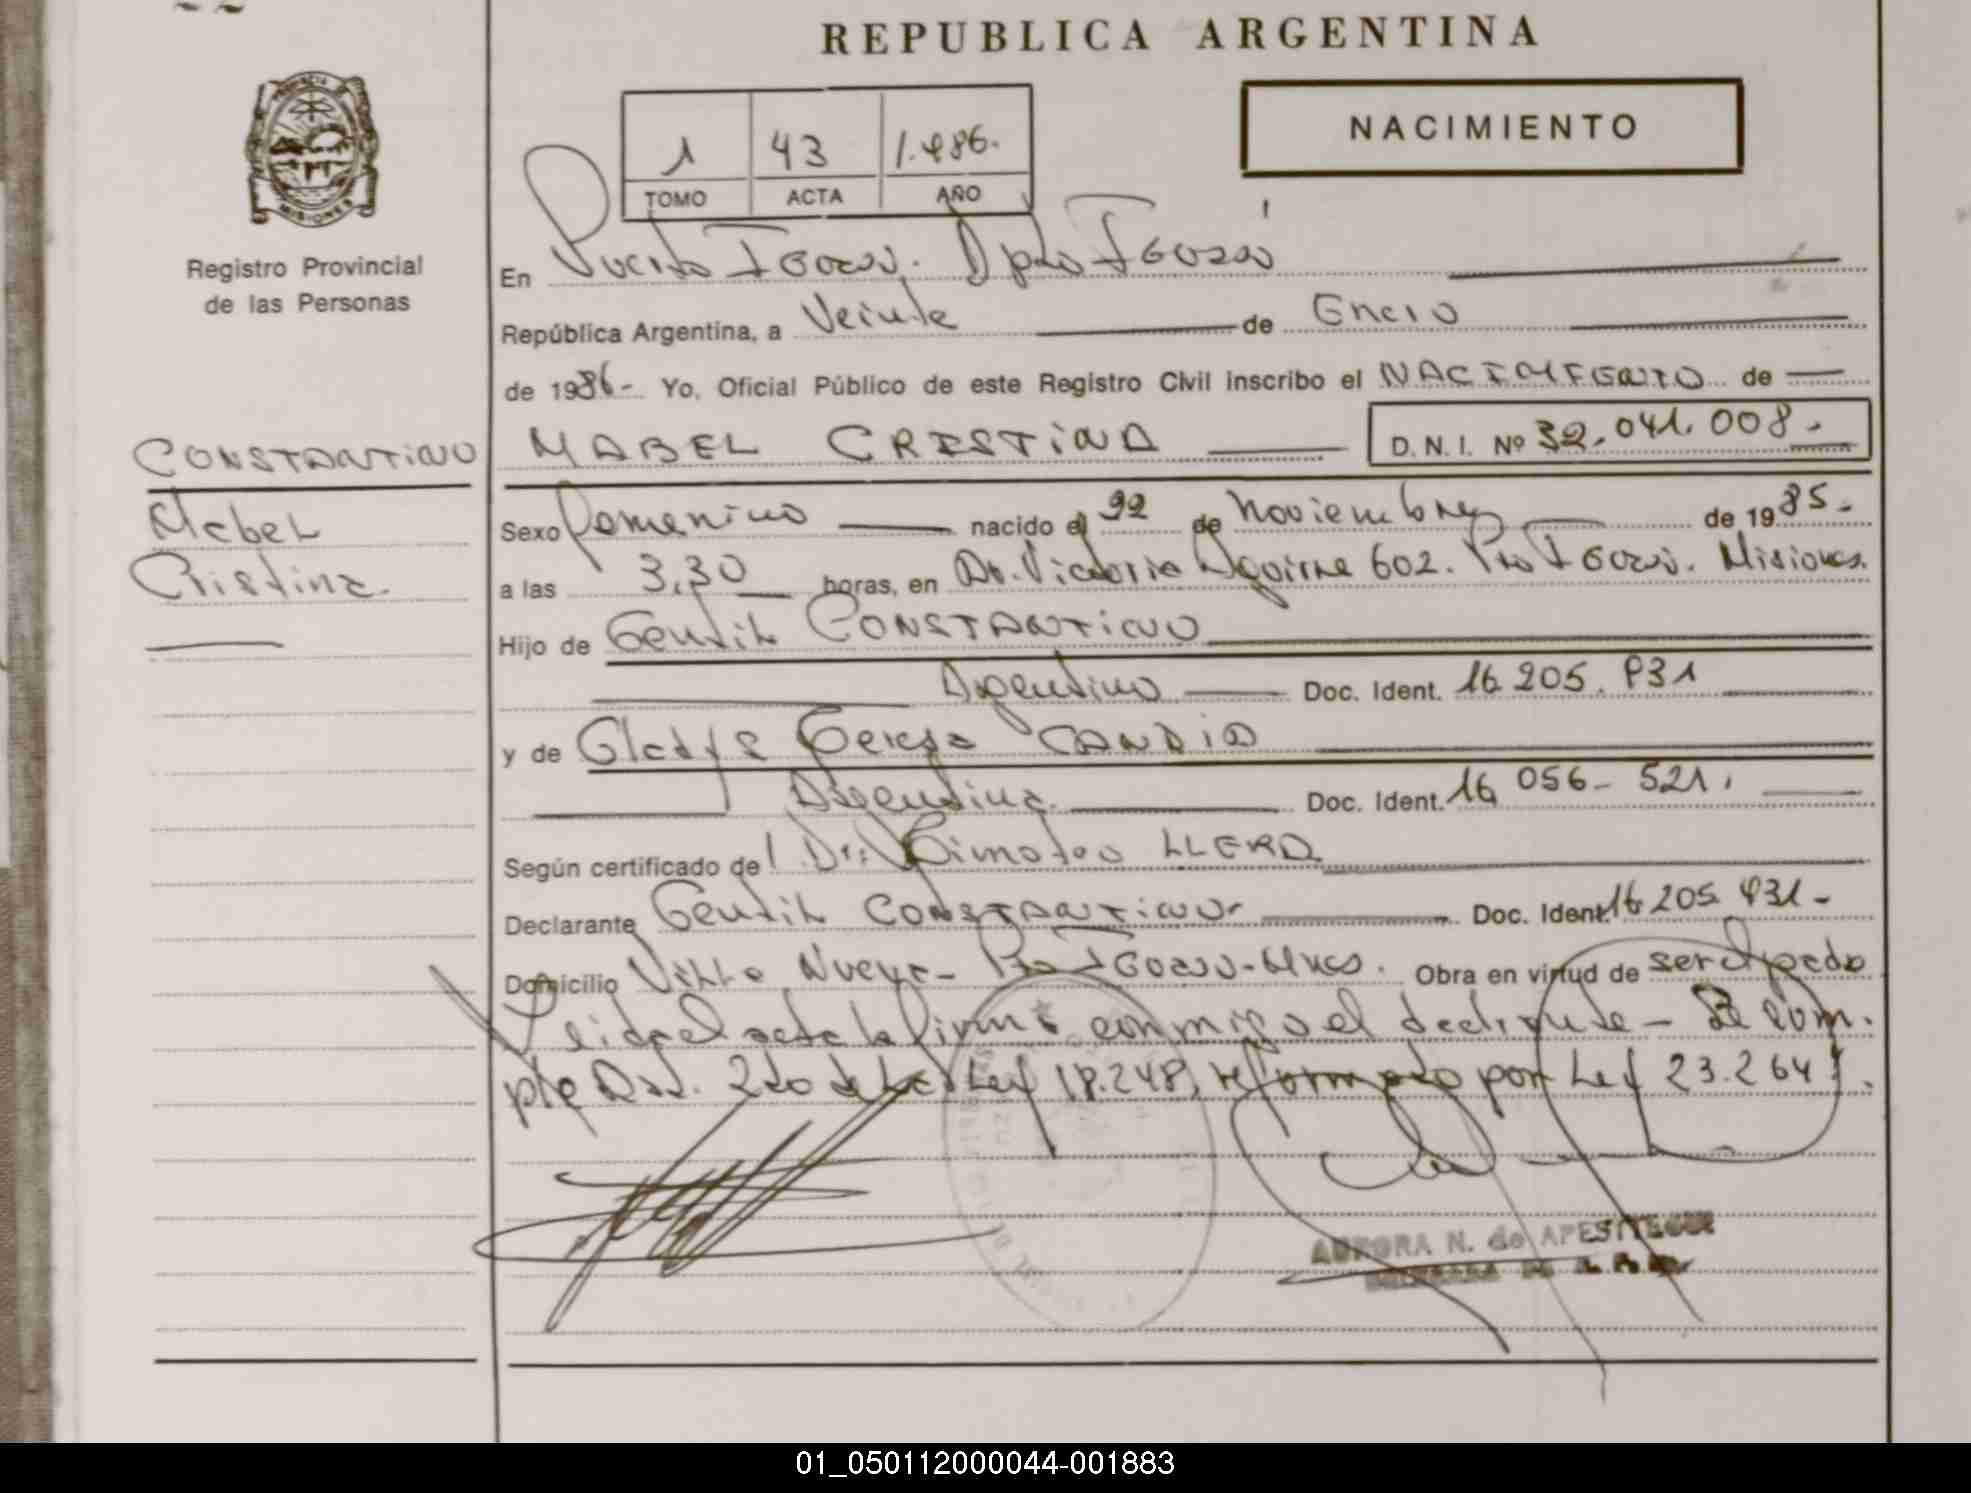 REPUBLICA ARGENTINA
PROVINCIA DE
MISIONES
Registro Provincial
de las Personas
NACIMIENTO
1 43 1.986.
TOMO ACTA AÑO
En Puerto Iguazú. Dpto Iguazú
República Argentina, a Veinte de Enero
de 1986- Yo, Oficial Público de este Registro Civil inscribo el NACIMIENTO de
CONSTANTINO
Mabel
Cristina.
MABEL CRISTINA D.N.I. Nº 32.041.008.-
Sexo Femenino nacido el 22 de Noviembre de 1985.
a las 3,30 horas, en Av. Victoria Aguirre 602. Pto Iguazú. Misiones.
Hijo de Gentil CONSTANTINO
Argentino Doc. Ident. 16 205. 931
y de Gladys Teresa CANDIA
Argentina. Doc. Ident. 16 056- 521.
Según certificado de Dr: Timoteo LLERA
Declarante Gentil CONSTANTINO- Doc. Ident. 16 205 931-
Domicilio Villa Nueva- Pto Iguazú-Mnes. Obra en virtud de ser el padre
Leida el acta la firma conmigo el declarante- Se cum.
ple Art. 2do de la Ley 18.248, reformado por Ley 23.264.
AURORA N. de APESTEGUI
01_050112000044-001883